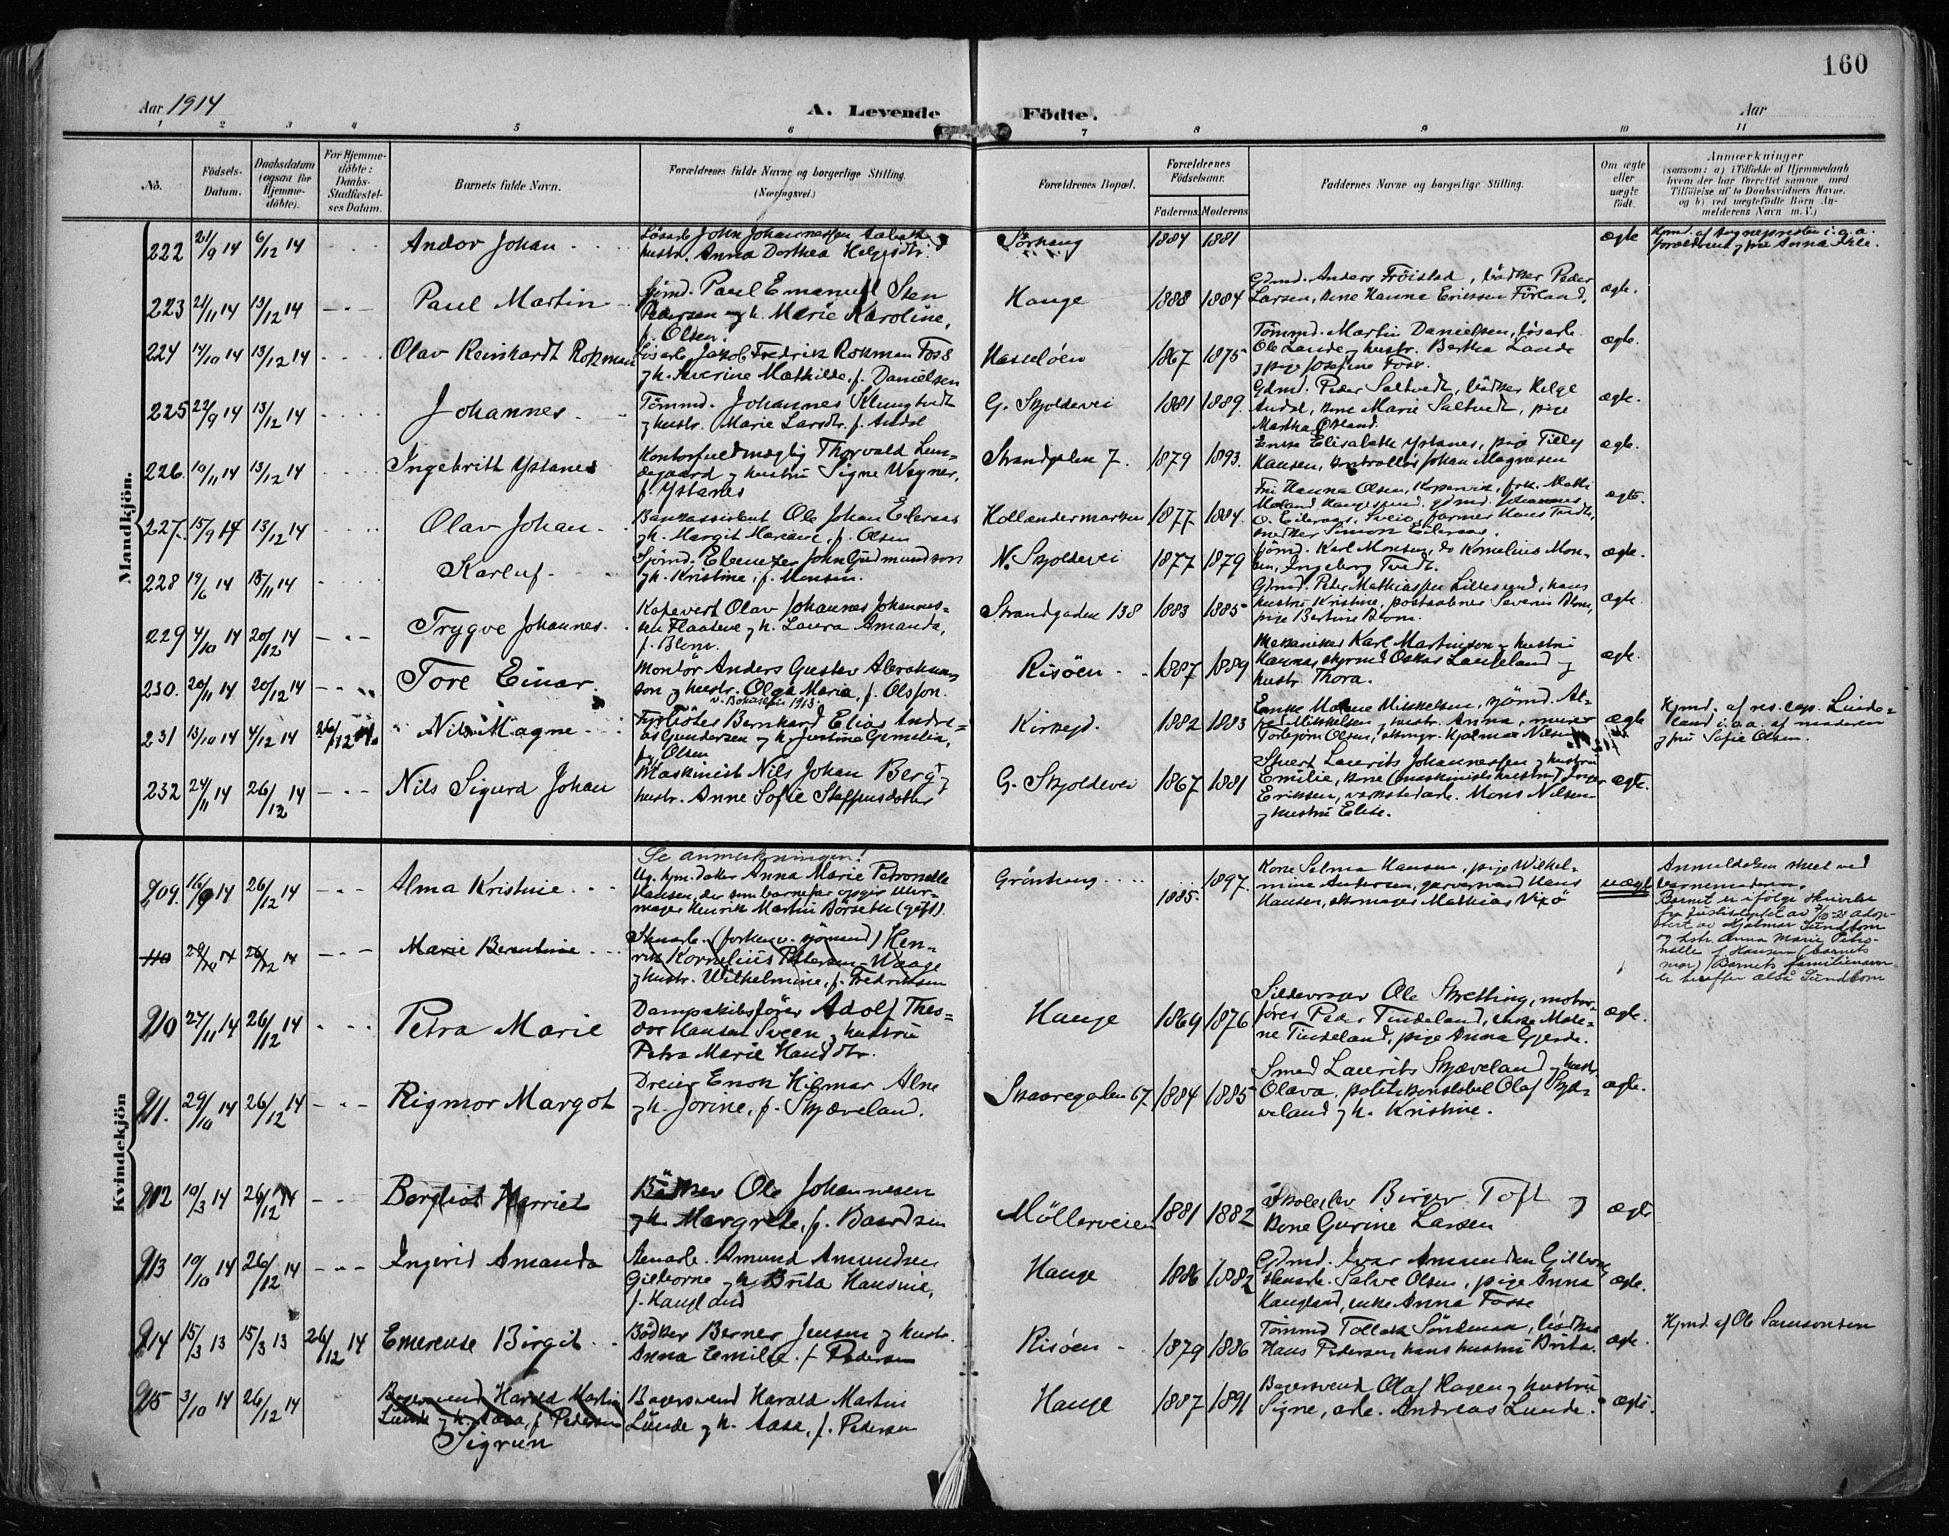 160
Aar 1914
A. Levende
Födte.
Aar
1 2 3 4 5 6 7 8 9 10 11
No.
Födsels-
Datum.
Daabsdatum
(ogsaa for
Hjemme-
döbte).
For Hjemme-
döbte:
Daabs-
Stadfæstel-
ses Datum.
Barnets fulde Navn.
Forældrenes fulde Navne og borgerlige Stilling.
(Næringsvei.)
Forældrenes Bopæl.
Forældrenes
Födselsaar.
Faderens Moderens
Faddernes Navne og borgerlige Stilling.
Om ægte
eller
uægte
födt.
Anmærkninger
(saasom: a) i Tilfælde af Hjemmedaab
hvem der har forrettet samme med
Tilföielse af to Daabsvidners Navne.
og b) ved uægtefödte Börn An-
melderens Navn m. V.)
Mandkjön.
222 21/9 14 6/12 14 Andor Johan
Lösarb. John Johannessen
hustr. Anna Dorthea Helgesdtr.
Sörhaug 1884 1881 ægte
Hjmd. af sognepresten i. o. a.
223 21/11 14 13/12 14 Paul Martin
Sjömd. Paul Emanuel Sten
Pedersen og h. Marie Karoline,
f. Olsen.
Hauge 1888 1884
Gdmd. Anders Fröistad, bödker Peder
Larsen, kone Hanna Eriksen Förland,
ægte.
224 14/10 14 13/12 14 Olav Reinhardt Rokman
Lösarb. Jakob Fredrik Rokman Foss
og h. Severine Mathilde, f. Danielsen
Hasseloen 1867 1875
Tömmd. Martin Danielsen, lösarb.
Ole Lande og hustr. Bertha Lande
og pige Josefine Foss.
ægte.
225 22/9 14 13/12 14 Johannes
Tömmd. Johannes Klungtvedt
og hustr. Marie Larsdtr. f. Andal
G. Skjoldevei 1881 1889.
Gdmd. Peder Saltvedt, bödker Helge
Andal, kone Marie Saltvedt, pige
Martha Östland.
ægte.
226. 10/11 14 13/12 14 Ingebritt Ystanes
Kontorfuldmægtig Thorvald Lun-
degaard og hustru Signe Wagner,
f. Ystanes
Strandgaden 7. 1879 1893.
Enke Elisabeth Ystanes, pige Tilly
Hansen, kontrollör Johan Magnesen
ægte.
227. 15/9 14 13/12 14 Olav Johan
Bankassistent Ole Johan Eileraas
og h. Margit Mariane, f. Olsen
Hollændermarken 1877 1884.
Fru Hanna Olsen, Kopervik, frk. Math.
Moland Haugesund, gdmd. Johannes
O. Eileraas, Sveio, farmer Hans Tvedt,
snedker Simon Eileraas.
ægte.
228 19/6 14 15/11 14 Karluf
Sjömd. Ebenezer John Gudmundson
og h. Kristine, f. Monsen.
N. Skjoldevei 1877 1879
Sjömd. Karl Monsen, do Kornelius Mon-
sen, Ingeborg Tvedt.
ægte.
229 4/10 14 20/12 14 Trygve Johannes
Kapevert Olav Johannes Johannes-
sen Flaadene og h. Laura Amanda,
f. Blom.
Strandgaden 138 1883 1885
Gdmd. Peter Mathiassen Lillesund, hans
hustru Kristine, postaabner Severin Blom,
pige Bertine Blom.
ægte.
230. 20/11 14 20/12 14 Tore Einar
Montör Anders Gustav Abraham-
son og hustr. Olga Maria, f. Olsson.
Risöen 1887 1889
Mekaniker Karl Martinson og hustru
Hagnas, styrmd Oskar Langeland og
hustr. Thora.
ægte.
231 13/10 14 4/12 14 26/12 14. Nils Magne
Fyrböter Bernhard Elias Andre-
as Gundersen og h. Justine Cornelia,
f. Olsen
Kirkegd. 1882 1883
Enke Malene Mikkelsen, sjömd. Al-
fred Mikkelsen og hustr. Anna, murer
Torbjörn Olsen, skomgr. Hjalmar Nilsen
ægte
Hjmd. af res. cap. Linde-
land i. o. a. af moderen
og fru Sofie Olsen.
232 24/11 14 26/12 14 Nils Sigurd Johan
Maskinist Nils Johan Berg og
hustr. Anne Sofie Staffensdatter
G. Skjoldevei 1867 1881
Stuert Laurits Johannessen og hustru
Emilie, kone (maskinists hustru) Inger
Eriksen, verkstedarb. Mons Nilsen
og hustru Elise.
ægte.
Kvindekjön
209. 16/9 14 26/12 14 Alma Kristine
Se anmerkningen!
Ug. hjm.datter Anna Marie Petronelle
Hansen, der som barnefar opgir Uhr-
mager Henrik Martin Börseth (gift).
Grönhaug 1885. 1897.
Kone Selma Hansen, pige Wilhel-
mine Andersen, garversvend Hans
Hansen, skomager Mathias Vixö
uægte
Anmeldelsen skeet ved
barnemoderen.
Barnet er ifölge skrivelse
fra Justisdeptet av 7/10 25 adop-
tert av Hjalmar Sundbom
og hstr. Anna Marie Petro-
nelle f. Hansen (barnets
mor) Barnets familienavn
er herefter altså Sundbom
210 29/10 14 26/12 14 Marie Berentine
Stenarb. (forhenv. sjömand) Hen-
rik Kornelius Petersen-Waage
og hustr. Wilhelmine, f. Fredriksen
210 27/11 14 26/12 14 Petra Marie
Dampskibsförer Adolf Theo-
dor Hansen Sveen og hustru
Petra Marie Hansdtr.
Hauge 1869 1876
Sildevrager Ole Skretting, motor-
förer Peder Tindeland, enke Male-
ne Tindeland, pige Anna Gjerde.
ægte.
211. 29/10 14 26/12 14 Rigmor Margot
Dreier Enok Hilmar Alne
og h. Jorine, f. Skjæveland.
Skaaregaden 67 1884 1885
Smed Laurits Skjæveland og hustr.
Olava, politikonstabel Olaf Skjæ-
veland og h. Kristine.
ægte.
212 10/3 14 26/12 14 Bergliot Harriet
Bödker Ole Johannesen
og h. Margrete, f. Baardsen
Möllerveien 1881 1882
Skolebstr Birger Toft og
kone Gurine Larsen
ægte
213 10/10 14 26/12 14 Ingerid Amanda
Stenarb. Amund Amundsen
Gilborne og h. Brita Hansine,
f. Haugland
Hauge 1886 1882
Gdmd. Ivar Amundsen Gilborne,
stenarb. Salve Olsen, pige Anna
Haugland, enke Anna Fosse
ægte.
214 15/3 13 15/3 13 26/12 14 Emerense Birgit
Bödker Berner Jensen og hustr.
Anna Emilie, f. Pedersen
Risöen 1879 1886
Tömmd Tollak Söndenaa, bödker
Hans Pedersen, hans hustru Brita.
ægte.
Hjmd. af Ole Samsonsen
215 3/10 14 26/12 14
Bagersvend Harald Martin
Lunde og h. Aasa, f. Pedersen
Sigrun
Bagersvend Harald Martin
Lunde og h. Aasa, f. Pedersen
Hauge 1887 1891
Bagersvend Olaf Hagen og hustru
Signe, arb. Andreas Lunde.
ægte.